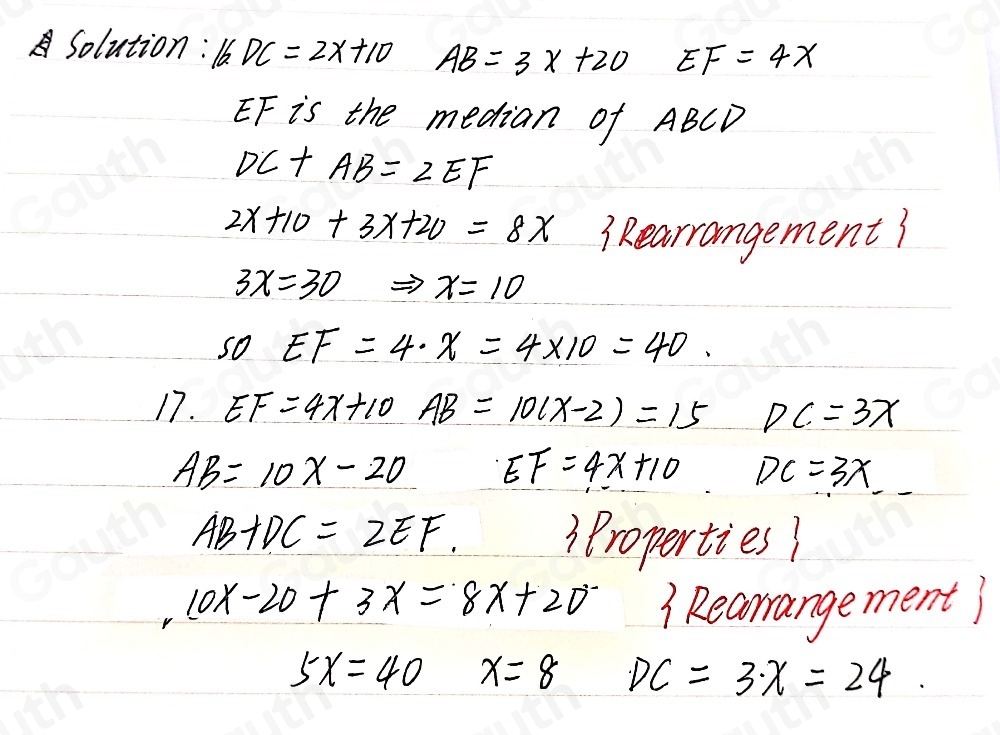 Solution: 16. DC = 2x+10 AB = 3x+20 EF = 4x
EF is the median of ABCD
DC + AB = 2EF
2x+10 + 3x+20 = 8x {Rearrangement}
3x=30 ⇒ x=10
so EF = 4·x = 4×10 = 40.
17. EF=4x+10 AB = 10(x-2) = 15 DC=3x
AB= 10x-20 EF=4x+10 DC=3x
AB+DC = 2EF. {Properties}
10x-20 + 3x = 8x+20 {Rearrangement}
5x=40 x=8 DC = 3·x = 24.